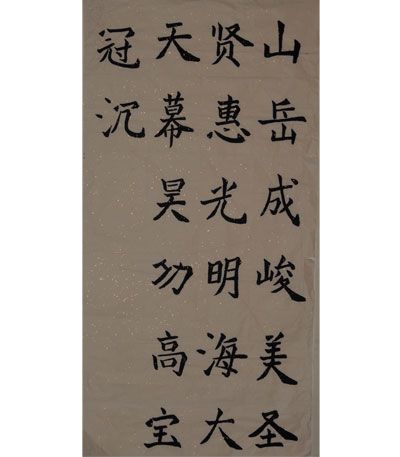 山岳成峻美圣
贤惠光明海大
天幕昊功高宝
冠沉